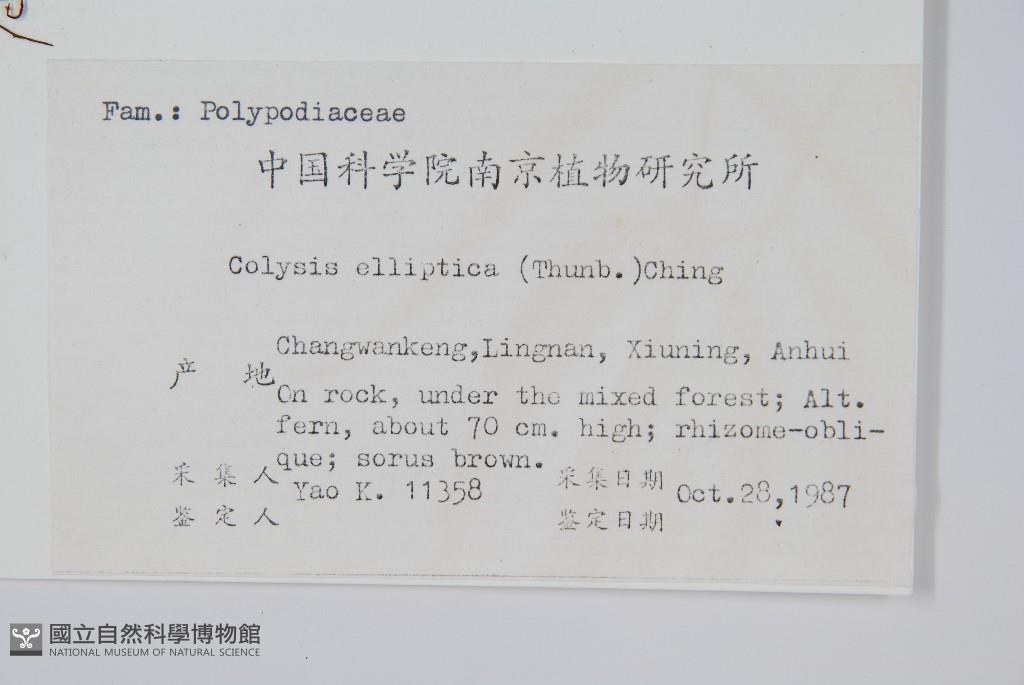 Fam.: Polypodiaceae
中国科学院南京植物研究所
Colysis elliptica (Thunb.)Ching
Changwankeng,Lingnan, Xiuning, Anhui
产 地
On rock, under the mixed forest; Alt.
fern, about 70 cm. high; rhizome-obli-
que; sorus brown.
采 集 人 Yao K. 11358 采集日期 Oct.28,1987
鉴 定 人 鉴定日期
國立自然科學博物館
NATIONAL MUSEUM OF NATURAL SCIENCE